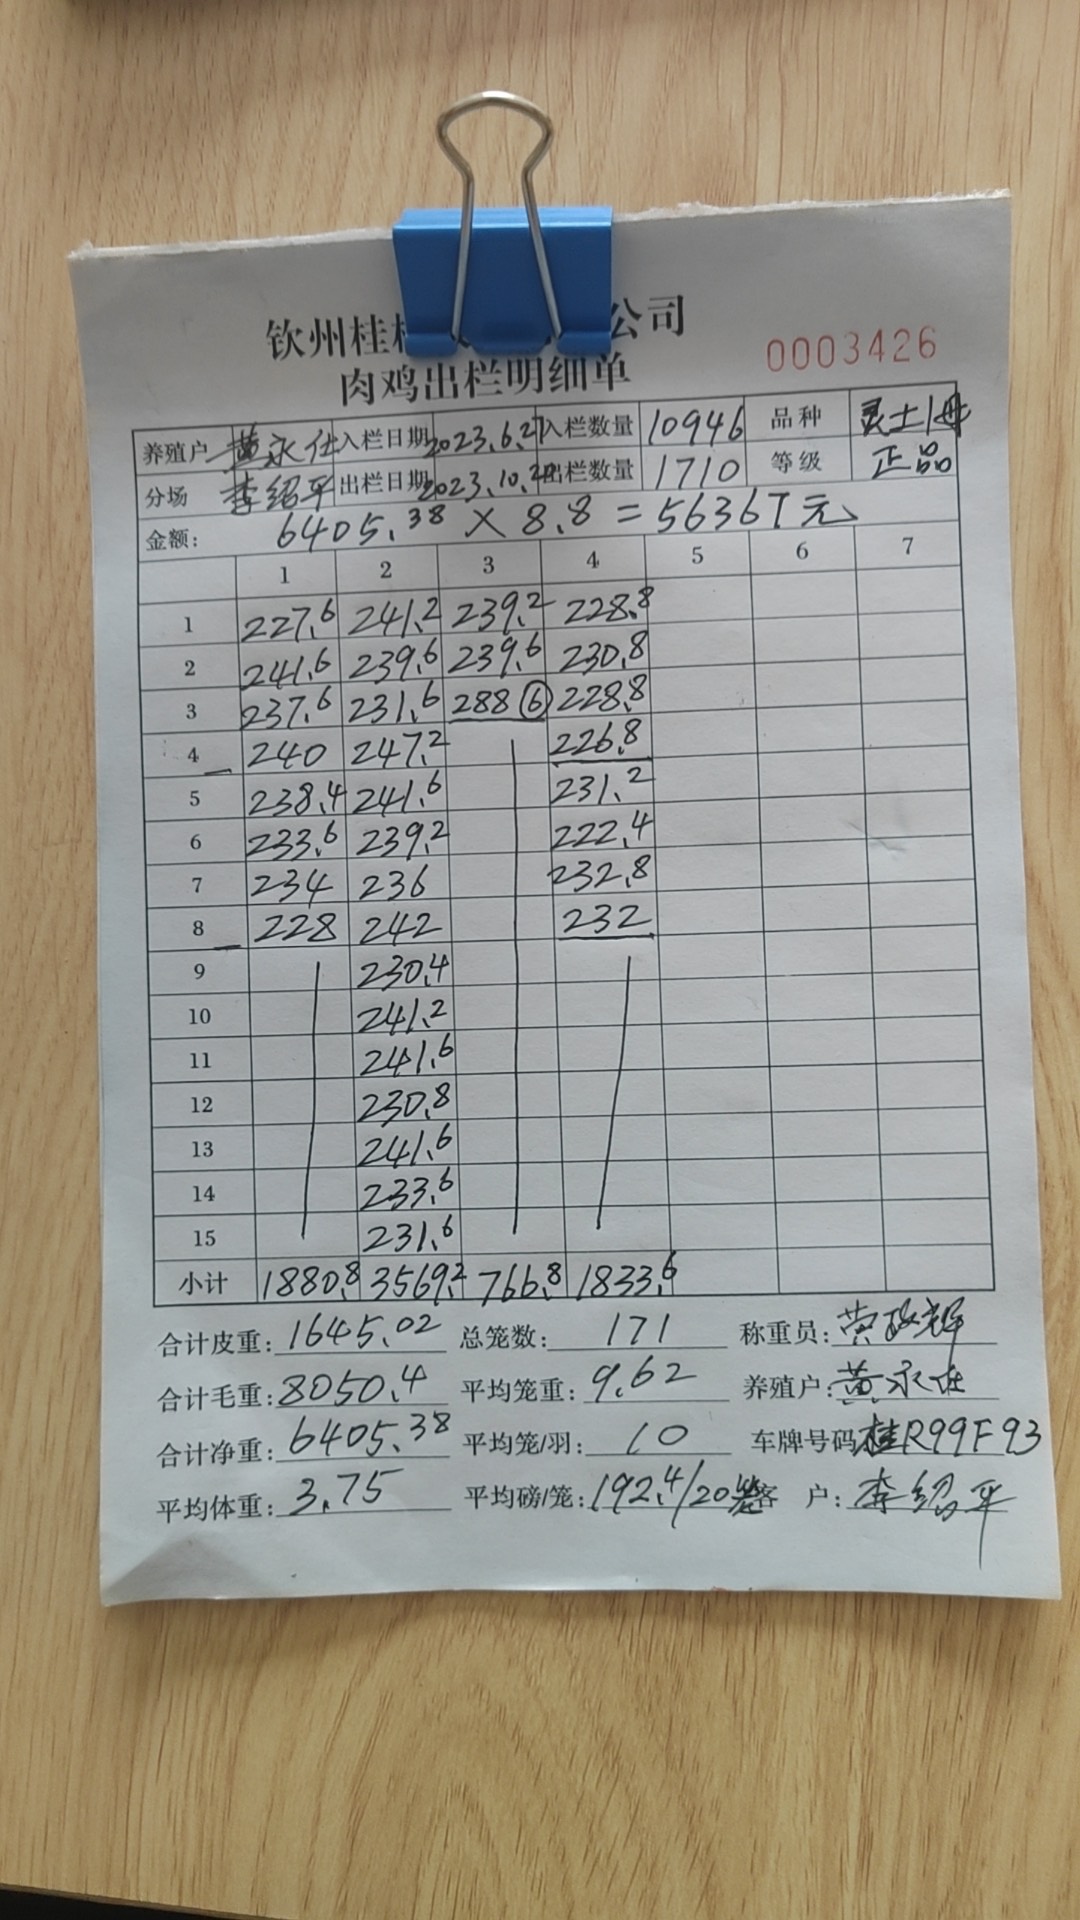 钦州桂 公司
肉鸡出栏明细单
0003426
养殖户 黄永仕 入栏日期 2023.6.27 入栏数量 10946 品种 灵土1母
分场 李绍平 出栏日期 2023.10.2 出栏数量 1710 等级 正品
金额: 6405.38 × 8.8 = 56367元
1 2 3 4 5 6 7
1 227.6 241.2 239.2 228.8
2 241.6 239.6 239.6 230.8
3 237.6 231.6 288 ⑥ 228.8
4 240 247.2 226.8
5 238.4 241.6 231.2
6 233.6 239.2 222.4
7 234 236 232.8
8 228 242 232
9 230.4
10 241.2
11 241.6
12 230.8
13 241.6
14 233.6
15 231.6
小计 1880.8 3569.2 766.8 1833.6
合计皮重: 1645.02 总笼数: 171 称重员: 黄政辉
合计毛重: 8050.4 平均笼重: 9.62 养殖户: 黄永仕
合计净重: 6405.38 平均笼/羽: 10 车牌号码 桂R99F93
平均体重: 3.75 平均磅/笼: 192.4/20笼 客 户: 李绍平